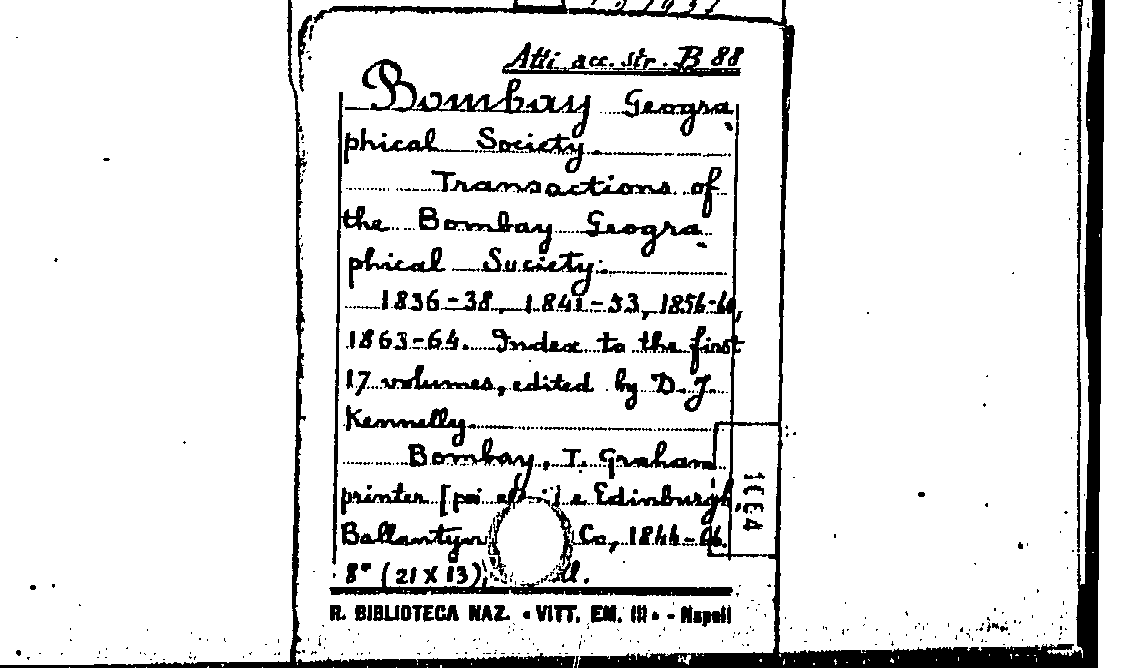 Atti acc. str. B 88
Bombay Geogra
phical Society.
Transactions of
the Bombay Geogra
phical Society.
1836-38, 1841-53, 1856-60,
1863-64. Index to the first
17 volumes, edited by D. J.
Kennelly
Bombay, T. Graham
printer [poi e Edinburgh,
Ballantyn Co, 1844-66.
8° (21 X 13),
R. BIBLIOTECA NAZ. « VITT. EM. III » - Napoli